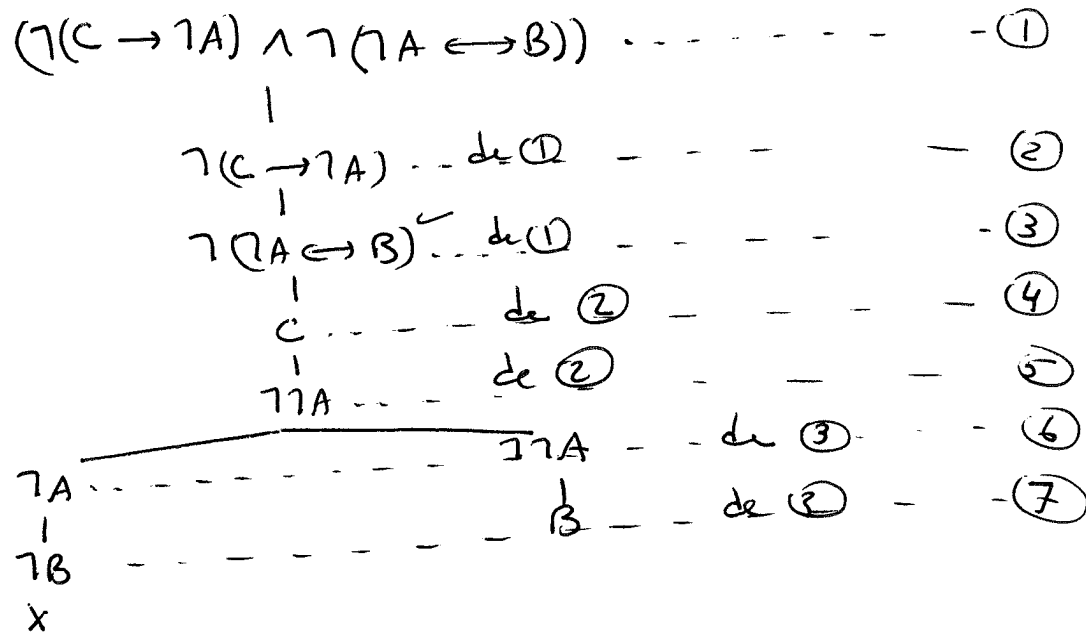 (¬(C → ¬A) ∧ ¬(¬A ↔ B)) ①
¬(C → ¬A) de ① ②
¬(¬A ↔ B) ✓ de ① ③
C de ② ④
¬¬A de ② ⑤
¬A ¬¬A de ③ ⑥
¬B B de ③ ⑦
X